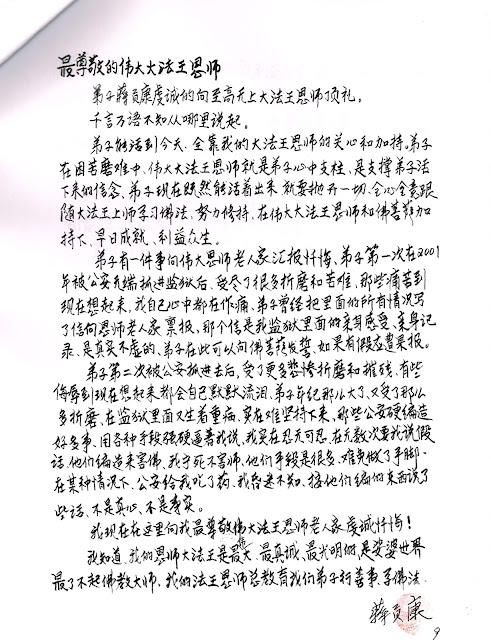 最尊敬的伟大大法王恩师
弟子蒋贡康虔诚的向至高无上大法王恩师顶礼。
千言万语不知从哪里说起。
弟子能活到今天、全靠我的大法王恩师的关心和加持。弟子
在困苦磨难中、伟大大法王恩师就是弟子心中支柱、是支撑弟子活
下来的信念、弟子现在既然能活着出来 就要抛开一切、全心全意跟
随大法王上师学习佛法、努力修持、在伟大大法王恩师和佛菩萨加
持下、早日成就、利益众生。
弟子有一件事向伟大恩师老人家汇报忏悔、弟子第一次在2001
年被公安无端抓进监狱后、受尽了很多折磨和苦难、那些痛苦到
现在想起来、我自己心中都在作痛、弟子曾经把里面的所有情况写
了信向恩师老人家禀报、那个信是我监狱里面的亲耳感受、亲身记
录、是真实不虚的、弟子在此可以向佛菩萨发誓、如果有假应遭果报。
弟子第二次被公安抓进去后、受了更多悲惨折磨和摧残、有些
侮辱到现在想起来都会自己默默流泪、弟子年纪那么大了、又受了那么
多折磨、在监狱里面又生着重病、实在难坚持下来、那些公安硬编造
好多事、用各种手段强硬逼着我说、我实在忍无可忍、在无数次要我说假
话、他们编造来害佛、我宁死不害师、他们手段是很多、难免做了手脚、
在某种情况下、公安给我吃了药、我昏迷不知、接他们编的东西说了
些话、不是真心、不是事实。
我现在在这里向我最尊敬伟大法王恩师老人家虔诚忏悔！
我知道、我的恩师大法王是最大、最真诚、最光明的、是娑婆世界
最了不起佛教大师、我的法王恩师总教育我们弟子行善事、学佛法、
蒋贡康
9